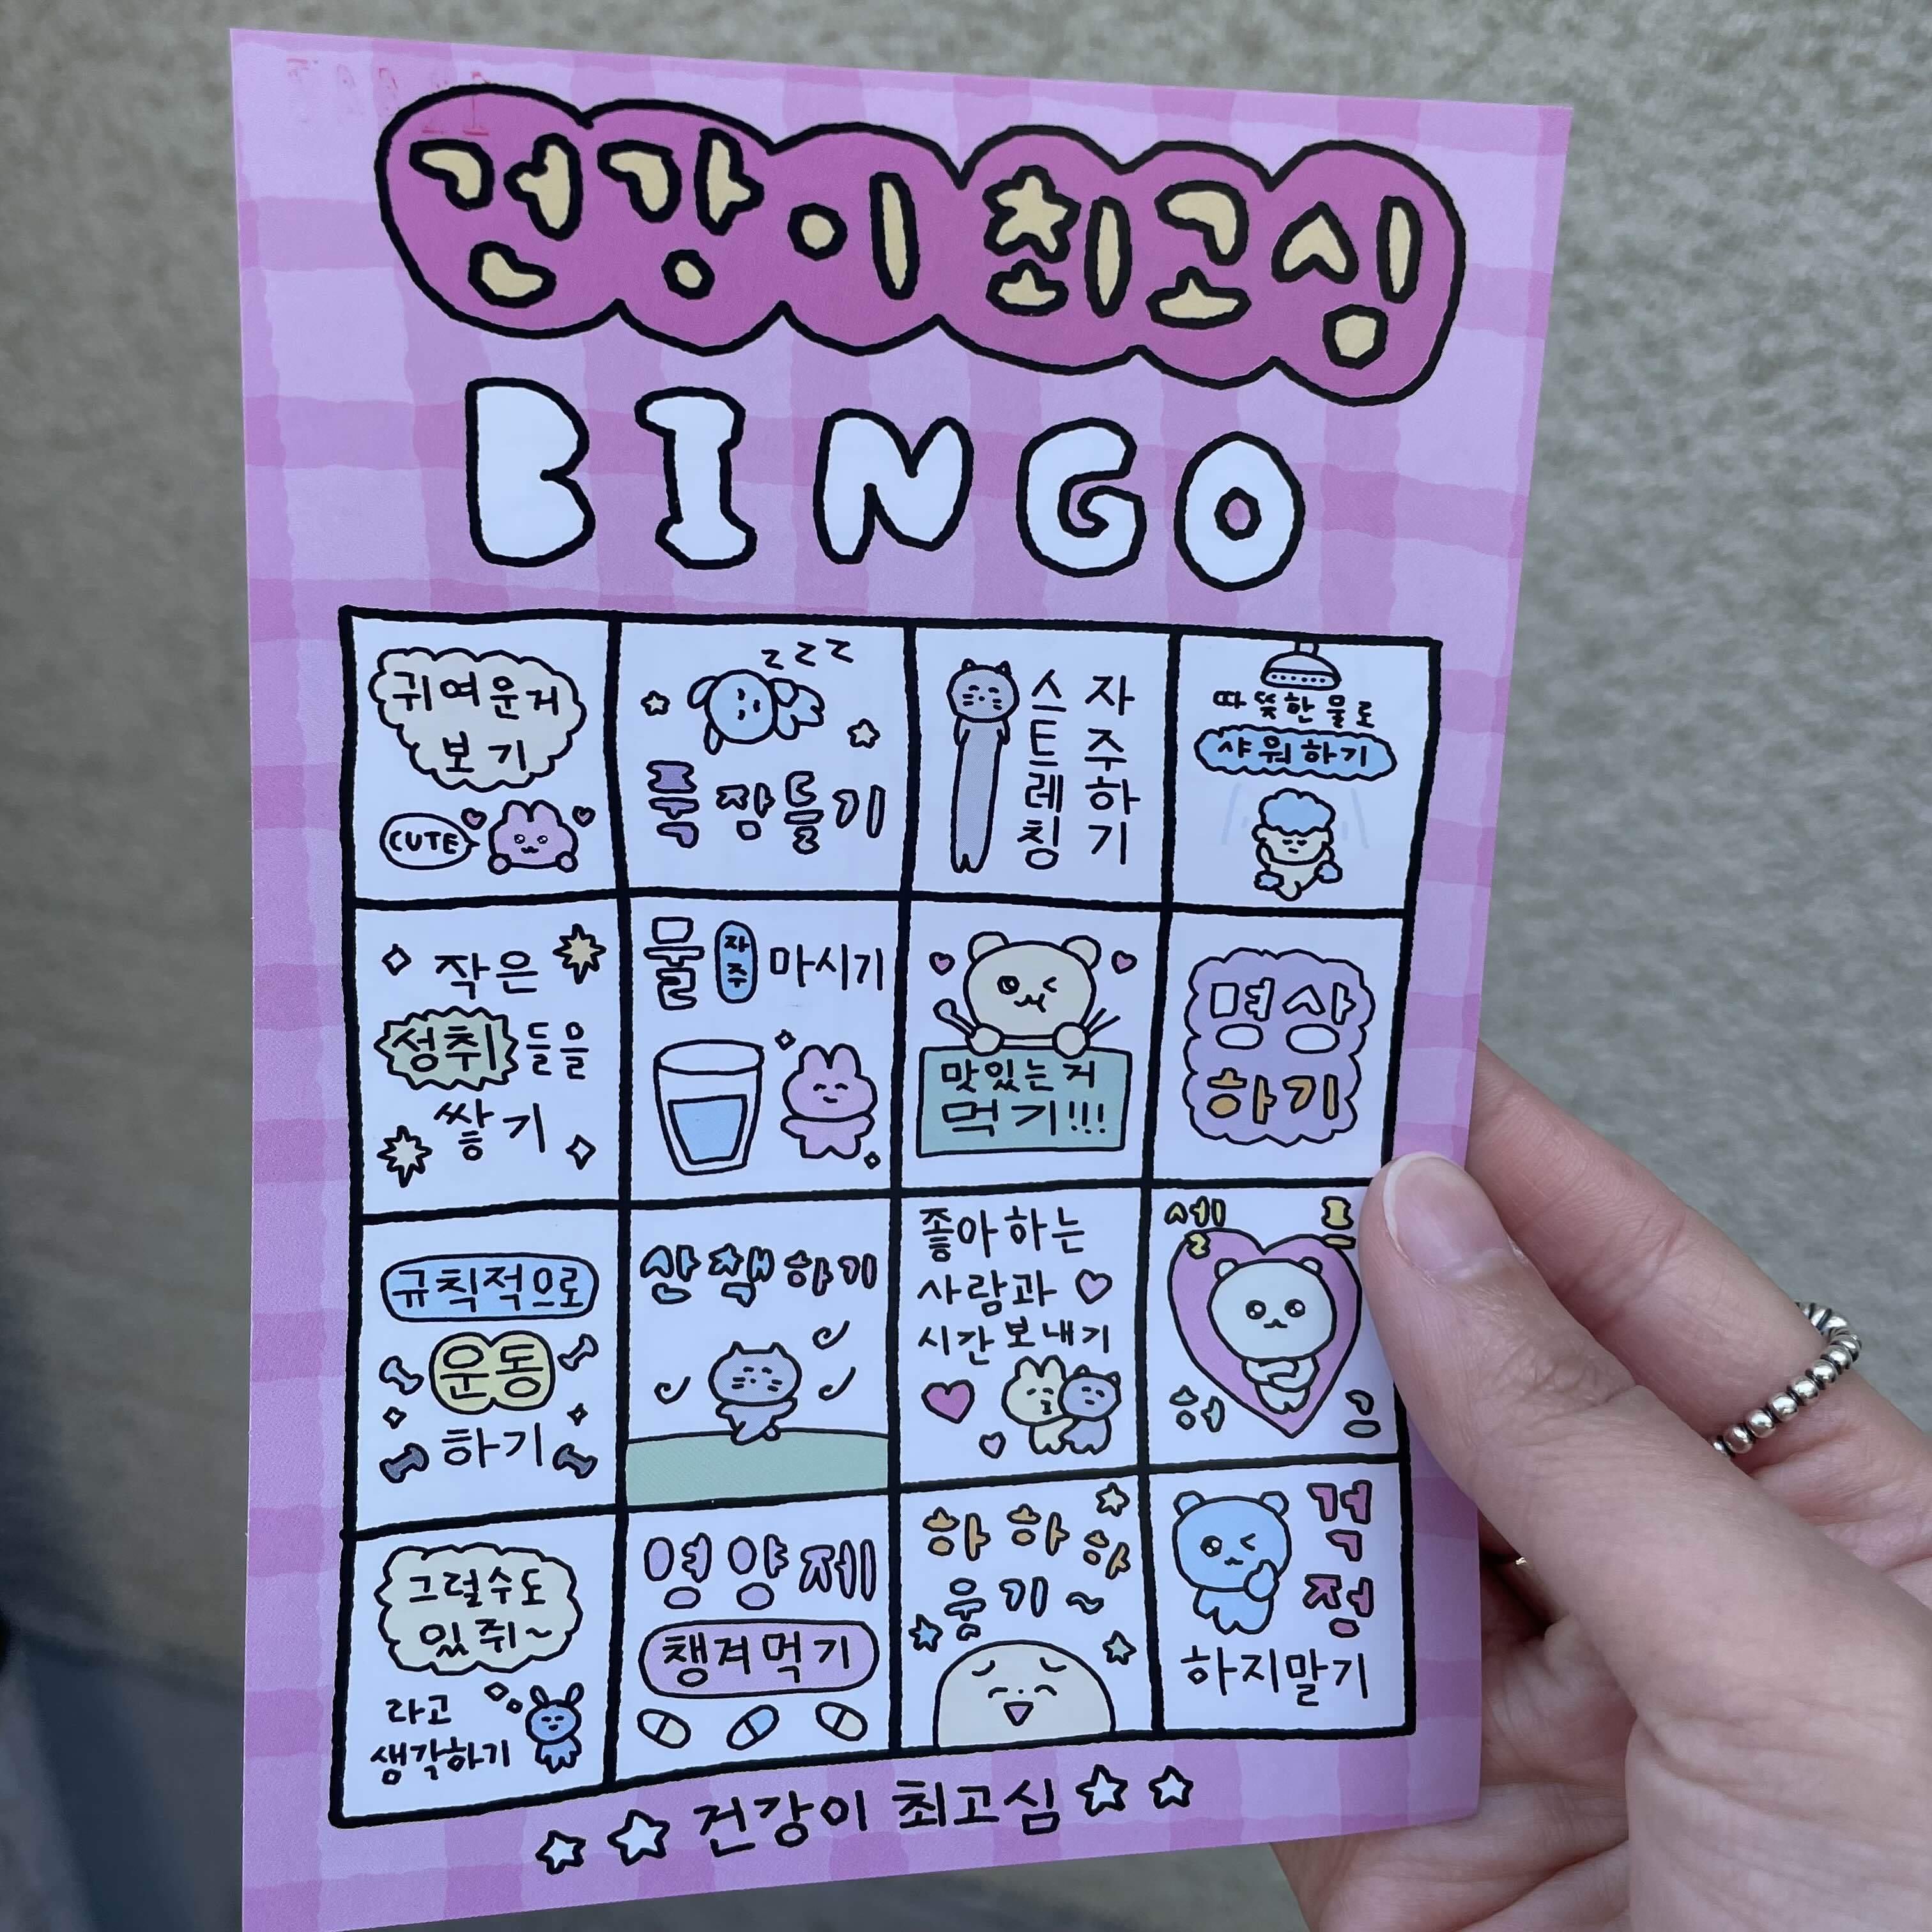 건강이 최고싱
BINGO
귀여운거
보기
CUTE
z z z
푹 잠들기
자주하기
스트레칭
따뜻한 물로
샤워하기
작은
성취들을
쌓기
물 자주 마시기
맛있는거
먹기!!!
명상
하기
규칙적으로
운동
하기
산책하기
좋아하는
사람과
시간 보내기
셀프
허그
그럴수도
있쥐~
라고
생각하기
영양제
챙겨먹기
하하하
웃기~
걱
정
하지말기
건강이 최고심